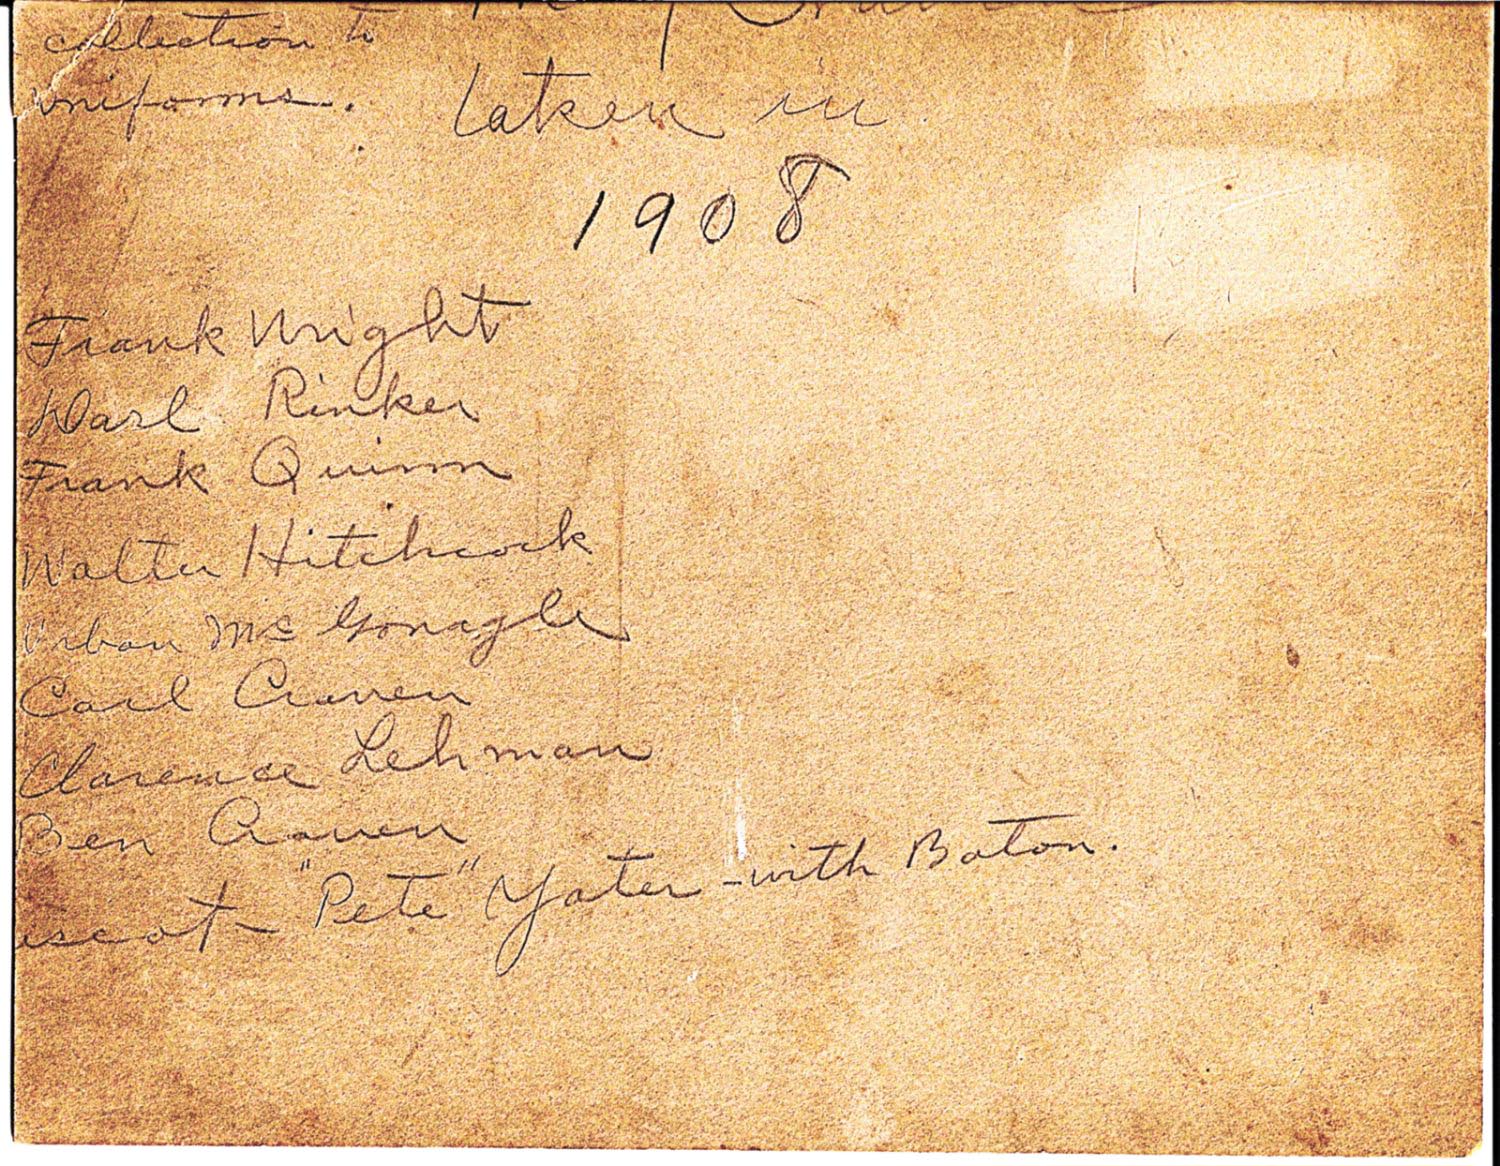 collection to
uniforms.
taken in
1908
Frank Wright
Darl Rinker
Frank Quinn
Walter Hitchcock
Urban McGonagle
Carl Craven
Clarence Lehman
Ben Craven
ascot "Pete" Yater - with Baton.